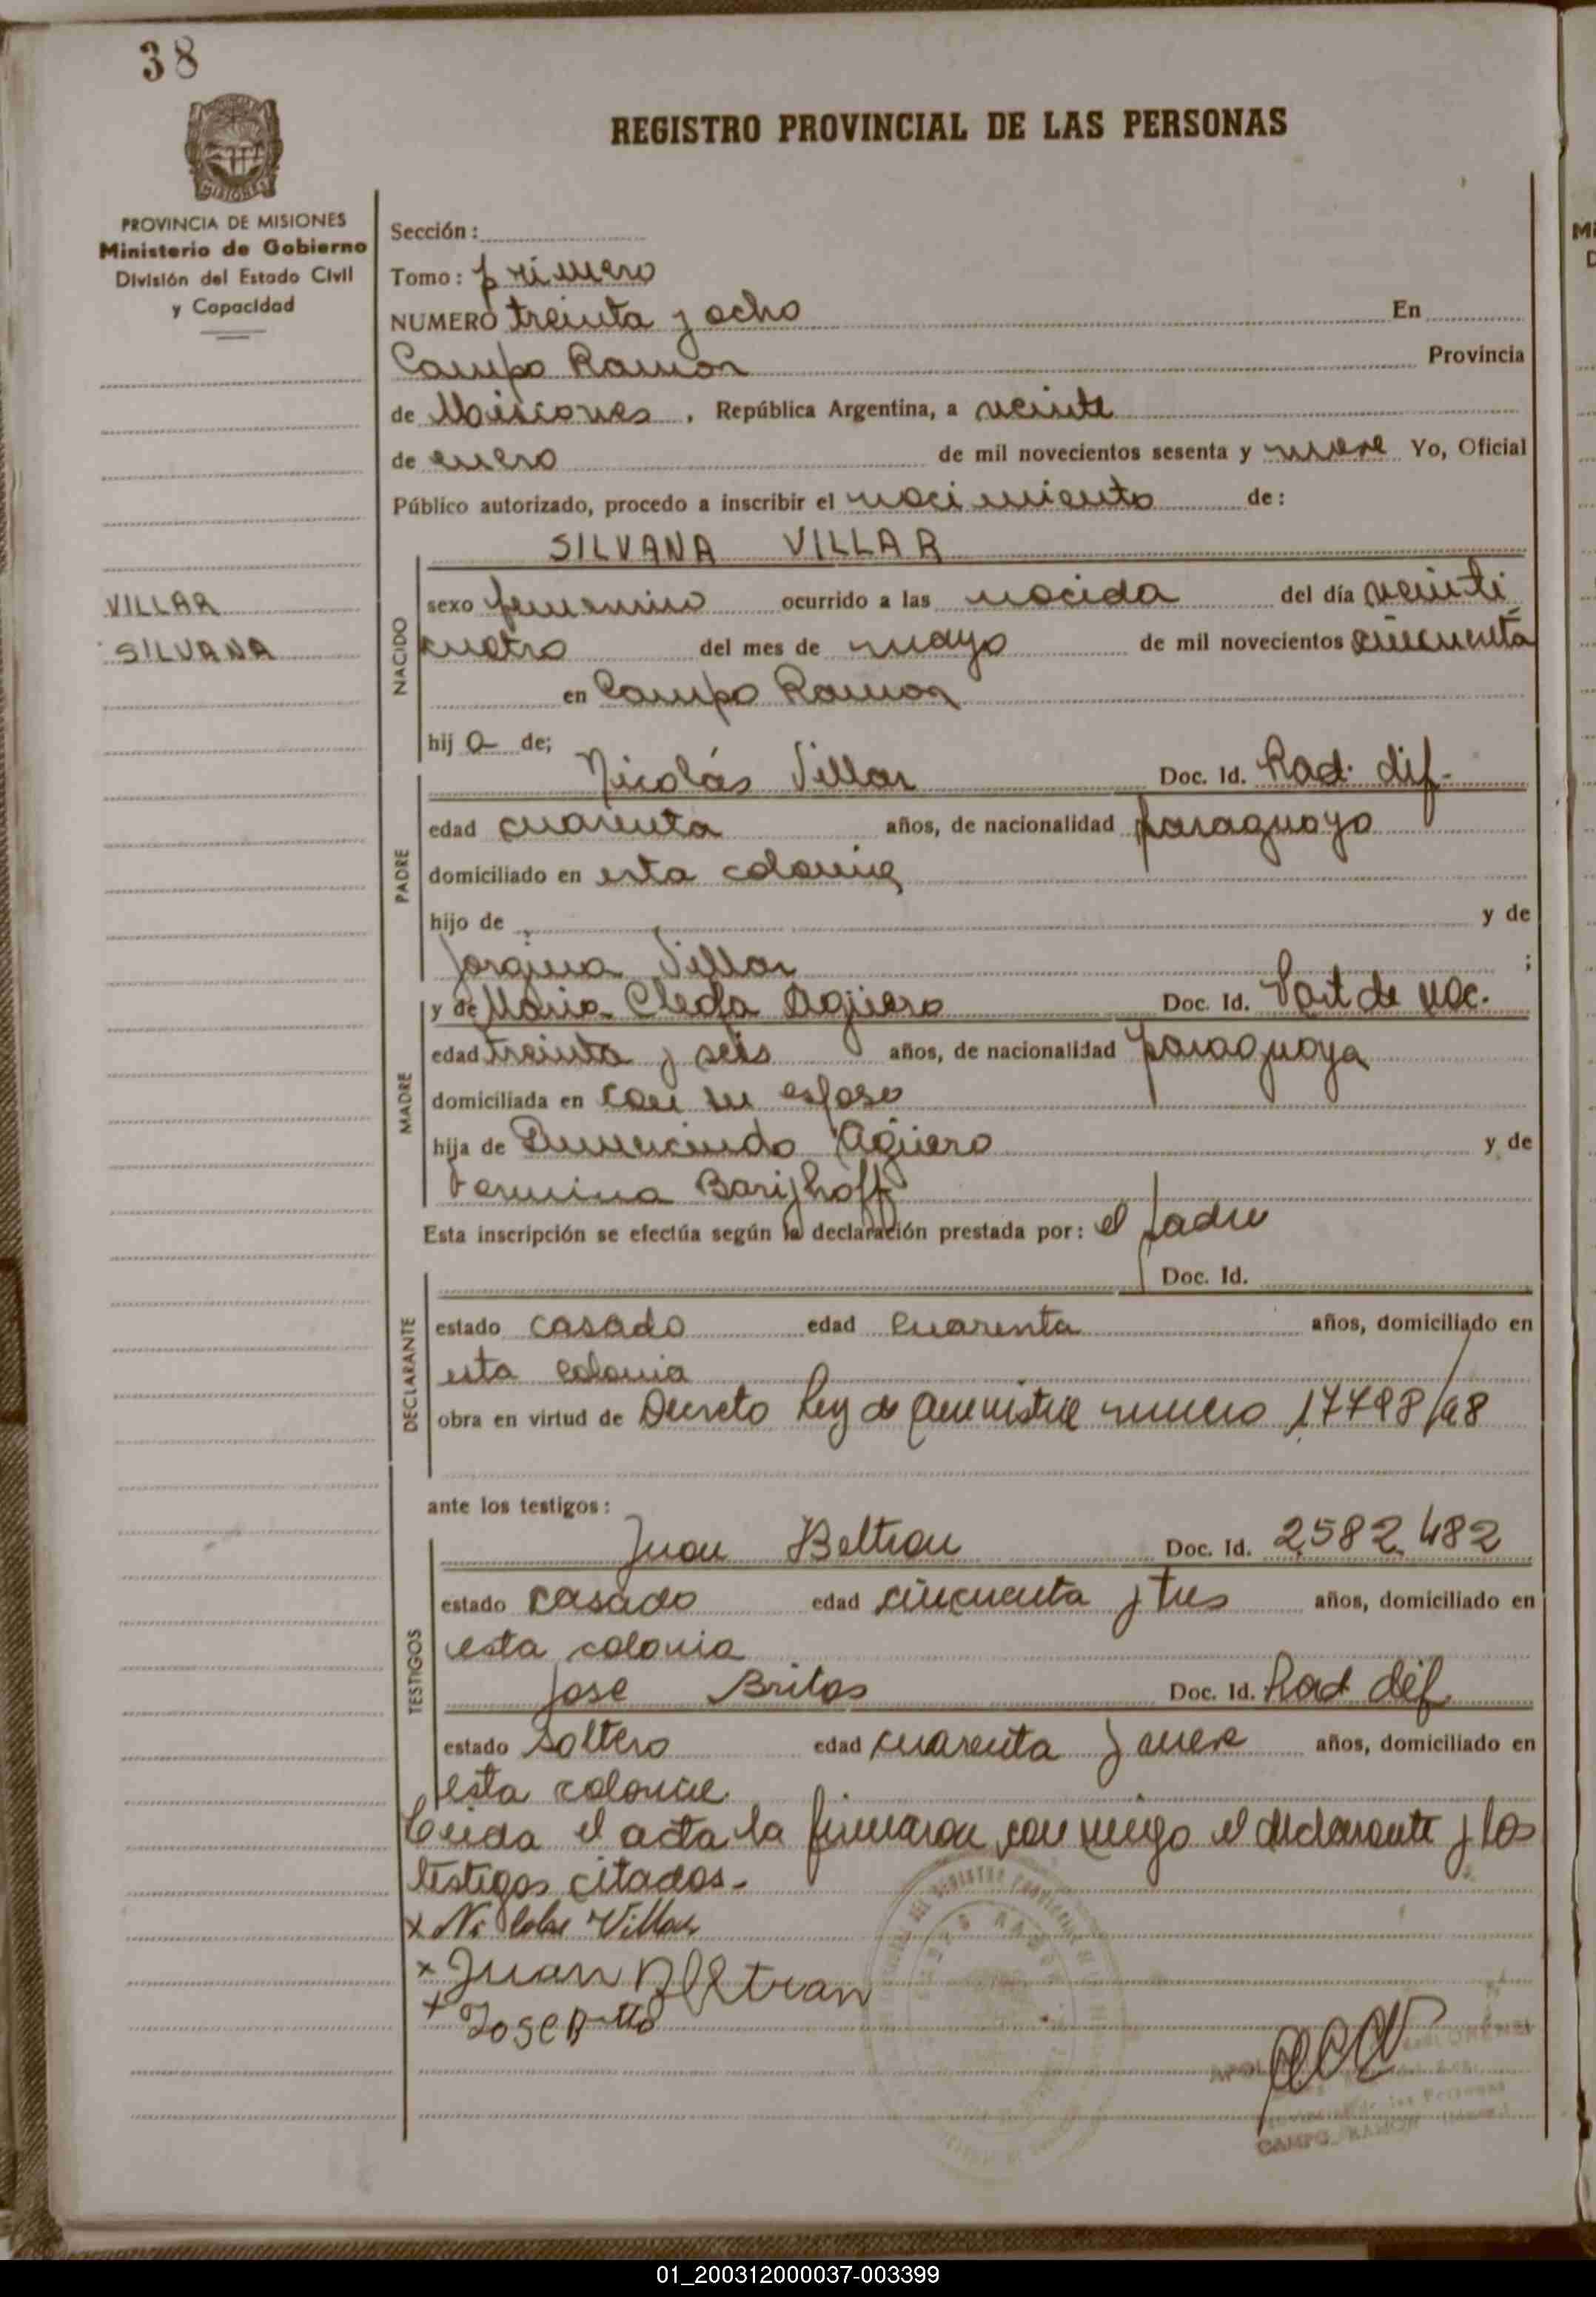 38
REGISTRO PROVINCIAL DE LAS PERSONAS
MISIONES
PROVINCIA DE MISIONES
Ministerio de Gobierno
División del Estado Civil
y Capacidad
VILLAR
SILVANA
Sección:
Tomo: primero
NUMERO treinta y ocho En
Campo Ramon Provincia
de Misiones, República Argentina, a veinte
de enero de mil novecientos sesenta y nueve Yo, Oficial
Público autorizado, procedo a inscribir el nacimiento de:
SILVANA VILLAR
NACIDO
sexo femenino ocurrido a las nacida del día veinti
cuatro del mes de mayo de mil novecientos cincuenta
en Campo Ramon
hij a de;
PADRE
Nicolás Villar Doc. Id. Rad. dif.
edad cuarenta años, de nacionalidad paraguayo
domiciliado en esta colonia
hijo de y de
Jorgina Villar ;
MADRE
y de Maria Cleofa Agüero Doc. Id. Part de nac.
edad treinta y seis años, de nacionalidad paraguaya
domiciliada en con su esposo
hija de Agüero y de
Barijhoff
Esta inscripción se efectúa según la declaración prestada por: el padre
DECLARANTE
Doc. Id.
estado casado edad cuarenta años, domiciliado en
esta colonia
obra en virtud de Decreto Ley de amnistia numero
ante los testigos:
TESTIGOS
Juan Beltran Doc. Id. 2,582,482
estado casado edad cincuenta y tres años, domiciliado en
esta colonia
Jose Britos Doc. Id. Rad dif.
estado soltero edad cuarenta y nueve años, domiciliado en
esta colonia.
Leida el acta la firmaron con migo el declarante y los
testigos citados.
x Villar
x Juan Beltran
+ Jose
CAMPO RAMON
01_200312000037-003399